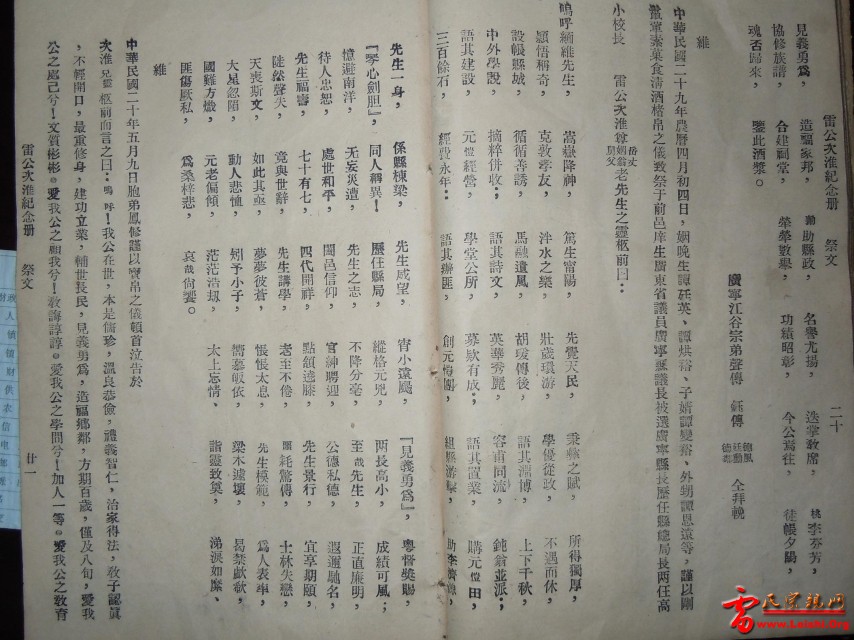 雷公次淮紀念册　祭文　二十
見義勇爲，　造福家邦，　勸助縣政，　名譽尤揚，　迭掌教席，　桃李芬芳，
協修族譜，　合建祠堂，　榮榮數舉，　功績昭彰，　今公焉往，　徒帳夕陽，
魂否歸來，　鑒此酒漿。
廣寧江谷宗弟聲傳　鈺傳　德風　廷勳　仝拜輓
維
中華民國二十九年農曆四月初四日，姻晚生譚廷英、譚烘裕、子婿譚變裕、外甥譚恩遠等，謹以剛
鬣葷素菓食清酒楮帛之儀致祭于前邑庠生廣東省議員廣寧縣議長被選廣寧縣長歷任縣總局長兩任高
小校長　雷公次淮尊岳丈姻翁舅父老先生之靈柩前曰：
嗚呼緬維先生，　嵩嶽降神，　篤生甯陽，　先覺天民，　秉彝之賦，　所得獨厚，
穎悟稱奇，　克敦孝友，　泮水之藻，　壯歲環游，　學優從政，　不遇而休，
設帳縣城，　循循善誘，　馬融遺風，　胡瑗傳後，　語其淵博，　上下千秋，
中外學說，　摘粹併收；　語其詩文，　英華秀麗，　容甫同流，　鈍翁並派；
語其建設，　元愷經營，　學堂公所，　募欵有成；　語其置業，　購元愷田，
三百餘石，　經費永年：　語其辦匪，　創元愷團，　組縣游擊，　助李濟
先生一身，　係縣棟梁，　先生威望，　宵小遠颺，　『見義勇爲』，　粵督獎賜，
『琴心劍胆』，　同人稱異！　歷任縣局，　縱格元兇，　兩長高小，　成績可風；
憶避南洋，　無妄災遭，　先生之志，　不降分毫，　至哉先生，　正直廉明，
待人忠恕，　處世和平，　闔邑信仰，　官紳聘迎，　公德私德，　遐邇馳名，
先生福壽，　七十有七，　四代開祥，　點頷遶膝，　先生景行，　宜享期頤，
陡然聲失，　竟與世辭，　先生講學，　老至不倦，　噩耗驚傳，　士林失戀，
天喪斯文，　如此其亟，　夢夢彼蒼，　悵悵太息，　先生模範，　爲人表率，
大星忽隕，　動人悲恤，　矧予小子，　嚮慕皈依，　梁木遽壞，　曷禁歔欷，
國難方熾，　元老偏傾，　茫茫浩刼，　太上忘情、　詣靈致奠，　涕淚如縻、
匪傷厥私，　爲桑梓悲，　哀哉尙饗。
維
中華民國二十年五月九日胞弟鳳修謹以寳帛之儀頓首泣告於
次淮兄靈柩前而言之曰：嗚呼！我公在世，本是儒珍，溫良恭儉，禮義智仁，治家得法，敎子認眞
，不輕開口，最重修身，建功立業，輔世長民，見義勇爲，造福鄉鄰，方期百歲，僅及八旬，愛我
公之處己兮！文質彬彬。愛我公之賙我兮！敎誨諄諄。愛我公之學問兮！加人一等。愛我公之敎育
雷公次淮紀念册　祭文　廿一
雷氏宗親网
www.Leishi.Org